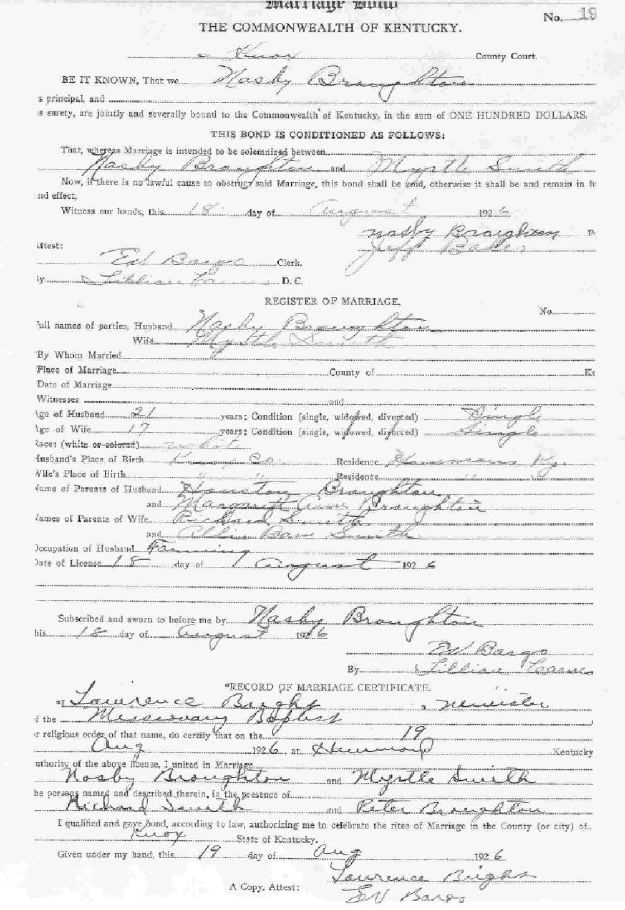 Marriage Bond
No. 19
THE COMMONWEALTH OF KENTUCKY.
Knox County Court.
BE IT KNOWN, That we Nasby Broughton
s principal, and
s surety, are jointly and severally bound to the Commonwealth of Kentucky, in the sum of ONE HUNDRED DOLLARS.
THIS BOND IS CONDITIONED AS FOLLOWS:
That, whereas Marriage is intended to be solemnized between
Nasby Broughton and Myrtle Smith
Now, if there is no lawful cause to obstruct said Marriage, this bond shall be void, otherwise it shall be and remain in fu
nd effect,
Witness our hands, this 18 day of August 1926
Nasby Broughton P
Jeff Baker
Attest:
Ed Bargo Clerk.
By Lillian D. C.
REGISTER OF MARRIAGE.
No.
Full names of parties, Husband Nasby Broughton
Wife Myrtle Smith
By Whom Married
Place of Marriage County of Ke
Date of Marriage
Witnesses and
Age of Husband 21 years; Condition (single, widowed, divorced) Single
Age of Wife 17 years; Condition (single, widowed, divorced) Single
Race: (white or colored) white
Husband's Place of Birth Knox Co Residence Ky
Wife's Place of Birth " " Residence " "
Name of Parents of Husband Broughton
and Margarett Ann Broughton
Names of Parents of Wife Richard Smith
and Smith
Occupation of Husband Farming
Date of License 18 day of August 1926
Subscribed and sworn to before me by Nasby Broughton
his 18 day of August 1926
Ed Bargo
By Lillian
*RECORD OF MARRIAGE CERTIFICATE.
Lawrence Bright, minister
f the Missionary Baptist
or religious order of that name, do certify that on the 19
Aug 1926 at Kentucky
uthority of the above license, I united in Marriage
Nasby Broughton and Myrtle Smith
he persons named and described therein, in the presence of
Richard Smith and Peter Broughton
I qualified and gave bond, according to law, authorizing me to celebrate the rites of Marriage in the County (or city) of
Knox State of Kentucky.
Given under my hand, this 19 day of Aug 1926
Lawrence Bright
A Copy, Attest:
Ed Bargo